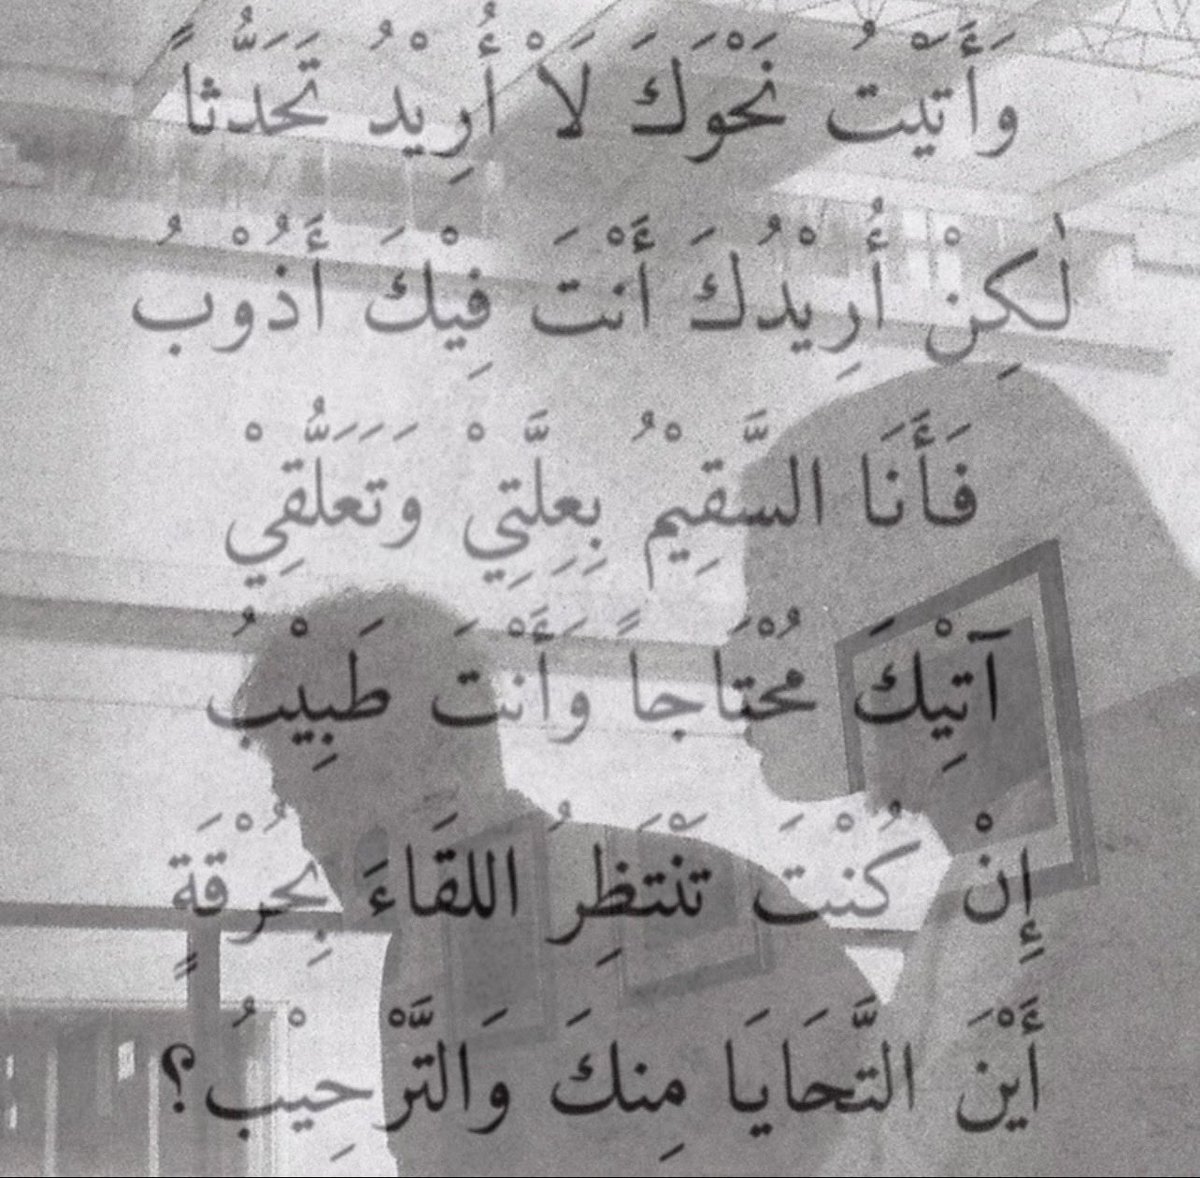 وَأَتَيْتُ نَحْوَكَ لَا أُرِيْدُ تَحَدُّثاً
لٰكِنْ أُرِيْدُكَ أَنْتَ فِيْكَ أَذُوْبُ
فَأَنَا السَّقِيْمُ بِعِلَّتِيْ وَتَعَلُّقِيْ
آتِيْكَ مُحْتَاجاً وَأَنْتَ طَبِيْبُ
إِنْ كُنْتَ تَنْتَظِرُ اللقَاءَ بِحُرْقَةٍ
أَيْنَ التَّحَايَا مِنكَ وَالتَّرْحِيْبُ؟